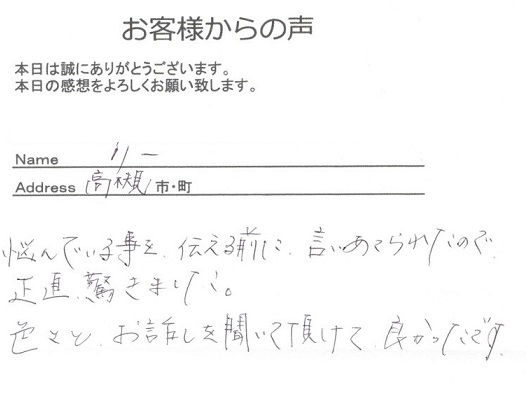 お客様からの声
本日は誠にありがとうございます。
本日の感想をよろしくお願い致します。
Name リー
Address 高槻 市・町
悩んでいる事を、伝える前に、言いあてられたので、
正直、驚きました。
色々と、お話しを聞いて頂けて、良かったです。